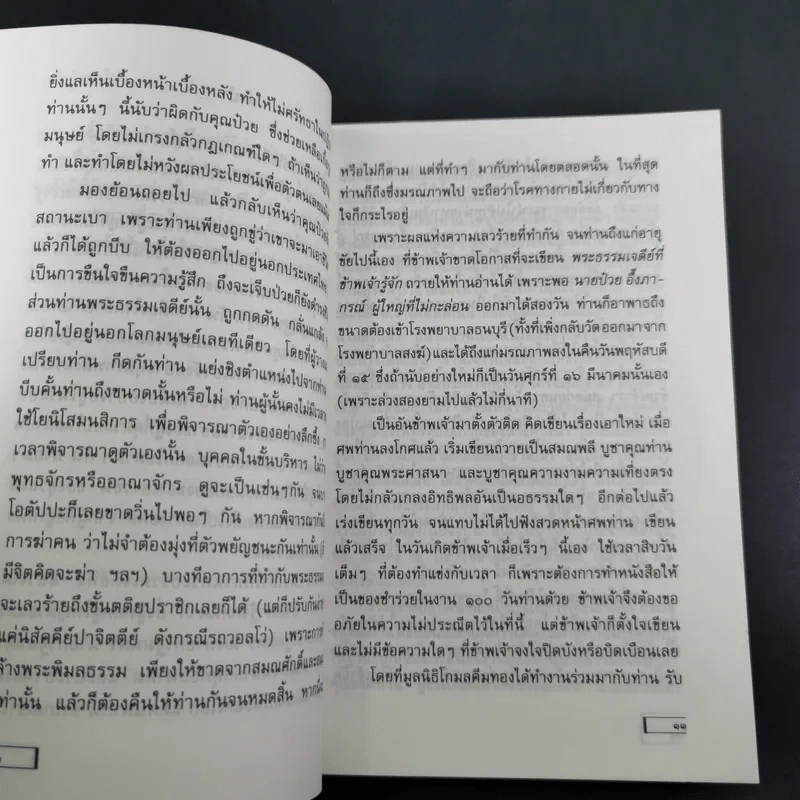 ยิ่งแลเห็นเบื้องหน้าเบื้องหลัง ทำให้ไม่ศรัทธาใน
ท่านนั้นๆ นี้นับว่าผิดกับคุณป๋วย ซึ่งช่วยเหลือ
มนุษย์ โดยไม่เกรงกลัวกฎเกณฑ์ใดๆ ถ้าเห็นว่า
ทำ และทำโดยไม่หวังผลประโยชน์เพื่อตัวตนเลย
มองย้อนถอยไป แล้วกลับเห็นว่าคุณป๋วย
สถานะเบา เพราะท่านเพียงถูกขู่ว่าเขาจะมาเอา
แล้วก็ได้ถูกบีบ ให้ต้องออกไปอยู่นอกประเทศไทย
เป็นการขืนใจขืนความรู้สึก ถึงจะเจ็บป่วยก็ยังดำรง
ส่วนท่านพระธรรมเจดีย์นั้น ถูกกดดัน กลั่นแกล้ง
ออกไปอยู่นอกโลกมนุษย์เลยทีเดียว โดยที่ผู้
เปรียบท่าน กีดกันท่าน แย่งชิงตำแหน่งไปจากท่าน
บีบคั้นท่านถึงขนาดนั้นหรือไม่ ท่านผู้นั้นคงไม่มีเวลา
ใช้โยนิโสมนสิการ เพื่อพิจารณาตัวเองอย่างลึกซึ้ง
เวลาพิจารณาดูตัวเองนั้น บุคคลในชั้นบริหาร ไม่ว่า
พุทธจักรหรืออาณาจักร ดูจะเป็นเช่นๆกัน จน
โอตัปปะก็เลยขาดวิ่นไปพอๆ กัน หากพิจารณากัน
การฆ่าคน ว่าไม่จำต้องมุ่งที่ตัวพยัญชนะกันเท่านั้น
มีจิตคิดจะฆ่า ฯลฯ) บางทีอาการที่ทำกับพระธรรม
จะเลวร้ายถึงขั้นตติยปราชิกเลยก็ได้ (แต่ก็ปรับกัน
แค่นิสัคคีย์ปาจิตตีย์ ดังกรณีรถวอลโว่) เพราะการ
ล้างพระพิมลธรรม เพียงให้ขาดจากสมณศักดิ์และ
ท่านั้น แล้วก็ต้องคืนให้ท่านกันจนหมดสิ้น หาก
หรือไม่ก็ตาม แต่ที่ทำๆ มากับท่านโดยตลอดนั้น ในที่สุด
ท่านก็ถึงซึ่งมรณภาพไป จะถือว่าโรคทางกายไม่เกี่ยวกับทาง
ใจก็กระไรอยู่
เพราะผลแห่งความเลวร้ายที่ทำกัน จนท่านถึงแก่อายุ
ขัยไปนี้เอง ที่ข้าพเจ้าขาดโอกาสที่จะเขียน พระธรรมเจดีย์ที่
ข้าพเจ้ารู้จัก ถวายให้ท่านอ่านได้ เพราะพอ นายป๋วย อึ๊งภา-
กรณ์ ผู้ใหญ่ที่ไม่กะล่อน ออกมาได้สองวัน ท่านก็อาพาธถึง
ขนาดต้องเข้าโรงพยาบาลธนบุรี (ทั้งที่เพิ่งกลับวัดออกมาจาก
โรงพยาบาลสงฆ์) และได้ถึงแก่มรณภาพลงในคืนวันพฤหัสบดี
ที่ ๑๕ ซึ่งถ้านับอย่างใหม่ก็เป็นวันศุกร์ที่ ๑๖ มีนาคมนั้นเอง
(เพราะล่วงสองยามไปแล้วไม่กี่นาที)
เป็นอันข้าพเจ้ามาตั้งตัวติด คิดเขียนเรื่องเอาใหม่ เมื่อ
ศพท่านลงโกศแล้ว เริ่มเขียนถวายเป็นสมณพลี บูชาคุณท่าน
บูชาคุณพระศาสนา และบูชาคุณความงามความเที่ยงตรง
โดยไม่กลัวเกลงอิทธิพลอันเป็นอธรรมใดๆ อีกต่อไปแล้ว
เร่งเขียนทุกวัน จนแทบไม่ได้ไปฟังสวดหน้าศพท่าน เขียน
แล้วเสร็จ ในวันเกิดข้าพเจ้าเมื่อเร็วๆ นี้เอง ใช้เวลาสิบวัน
เต็มๆ ที่ต้องทำแข่งกับเวลา ก็เพราะต้องการทำหนังสือให้
เป็นของชำร่วยในงาน ๑๐๐ วันท่านด้วย ข้าพเจ้าจึงต้องขอ
อภัยในความไม่ประณีตไว้ในที่นี้ แต่ข้าพเจ้าก็ตั้งใจเขียน
และไม่มีข้อความใดๆ ที่ข้าพเจ้าจงใจปิดบังหรือบิดเบือนเลย
โดยที่มูลนิธิโกมลคีมทองได้ทำงานร่วมมากับท่าน รับ
๑๑